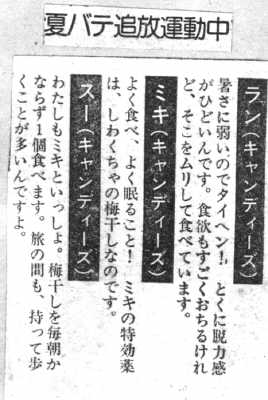 夏バテ追放運動中
ラン(キャンディーズ)
暑さに弱いのでタイヘン!、とくに脱力感
がひどいんです。食欲もすごくおちるけれ
ど、そこをムリして食べています。
ミキ(キャンディーズ)
よく食べ、よく眠ること! ミキの特効薬
は、しわくちゃの梅干しなのです。
スー(キャンディーズ)
わたしもミキといっしょ。梅干しを毎朝か
ならず1個食べます。旅の間も、持って歩
くことが多いんですよ。